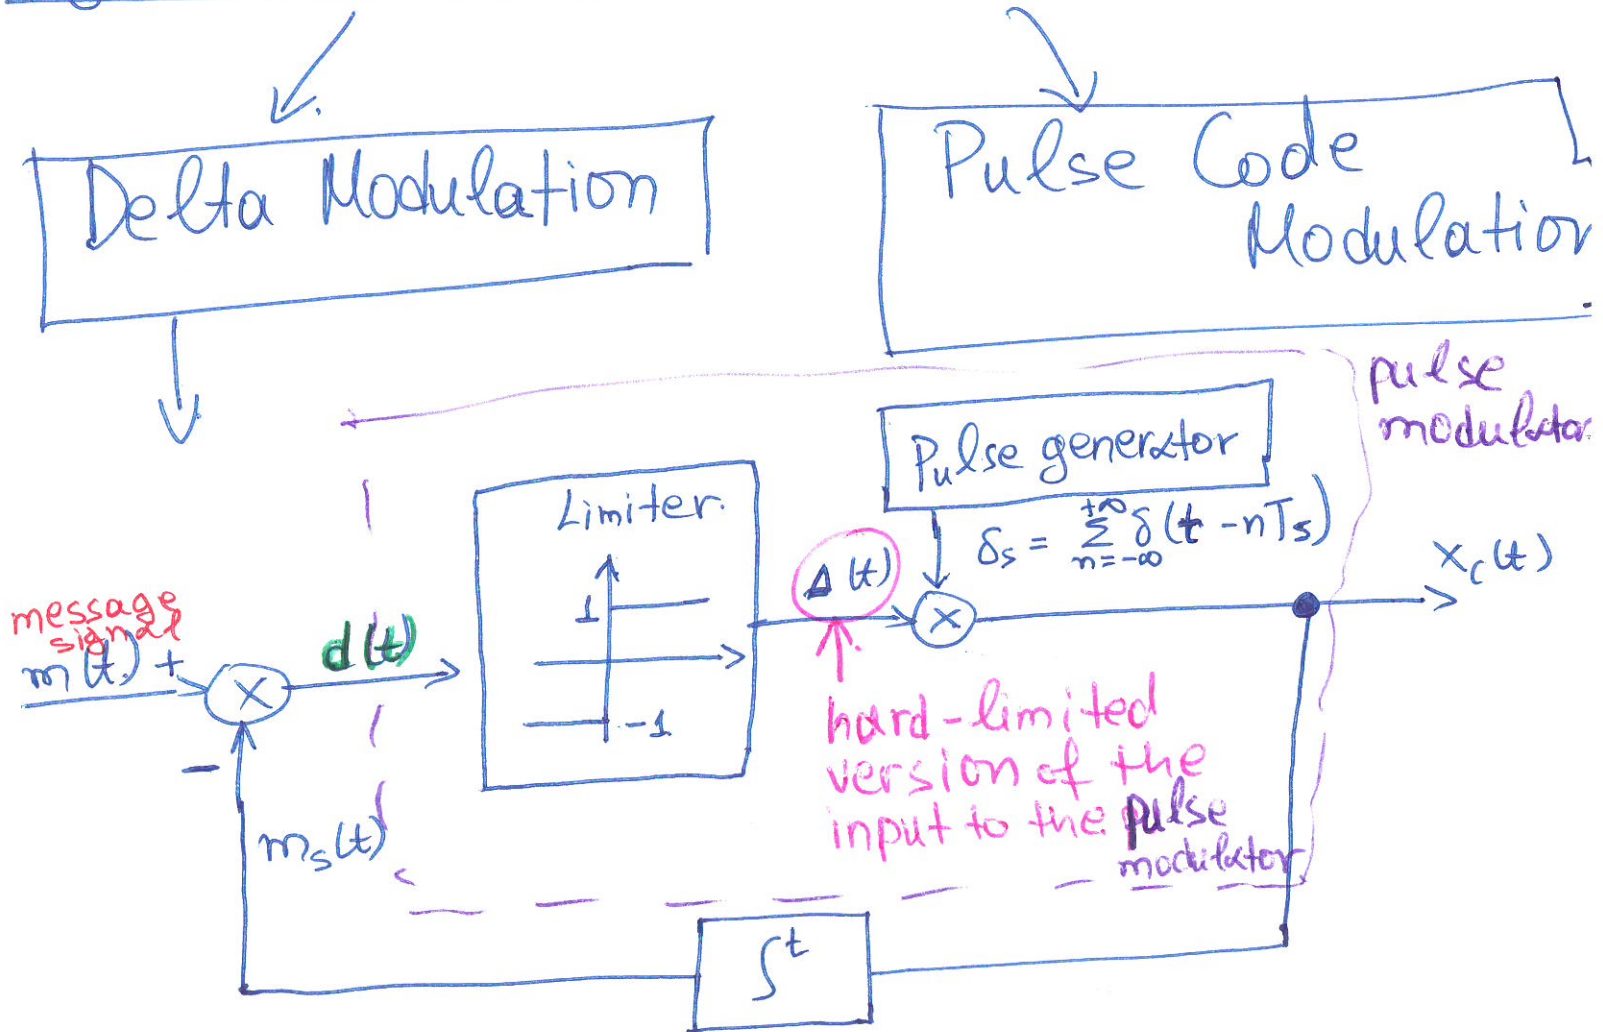 Delta Modulation
Pulse Code
Modulation
pulse
modulator
Pulse generator
Limiter.
1
-1
Δ(t)
δs = +∞ Σ n=-∞ δ(t - nTs)
xc(t)
message
signal
m(t) +
x
d(t)
x
-
ms(t)
hard-limited
version of the
input to the pulse
modulator
∫t